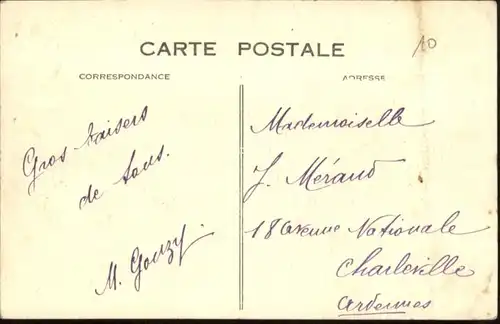 10
CARTE POSTALE
CORRESPONDANCE
ADRESSE
Gros baisers
de tous.
M. Gouzy.
Mademoiselle
J. Méraud
18 avenue Nationale
Charleville
Ardennes